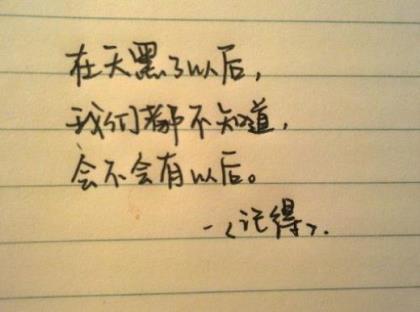 在天黑了以后，
我们都不知道，
会不会有以后。
—〈记得〉.